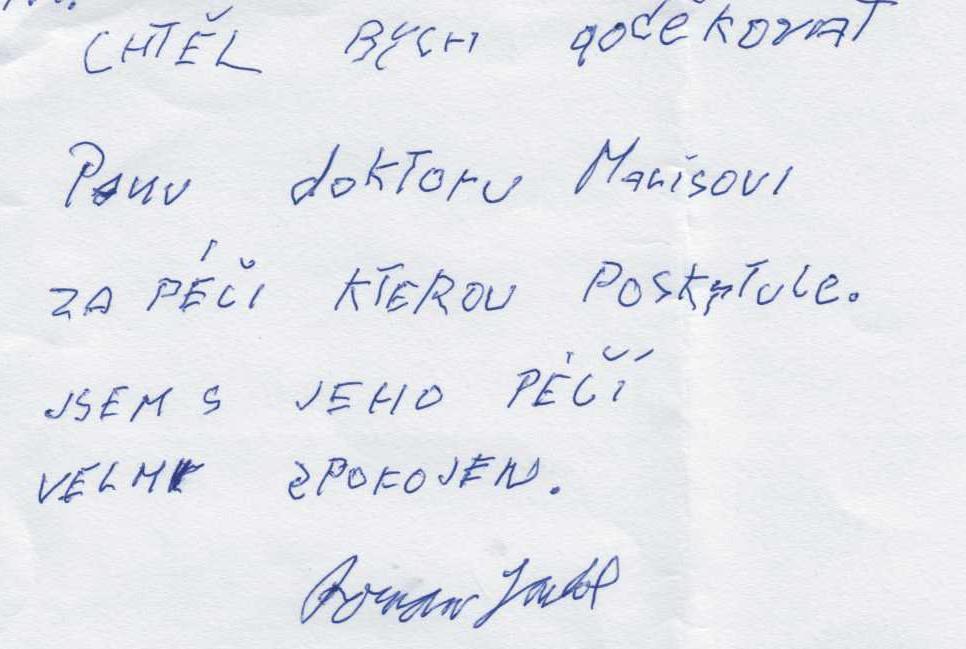 CHTĚL BYCH poděkovat
Panu doktoru Manisovi
ZA PÉČI KTEROU POSKYTUJE.
JSEM S JEHO PÉČÍ
VELMI SPOKOJEN.
Roman